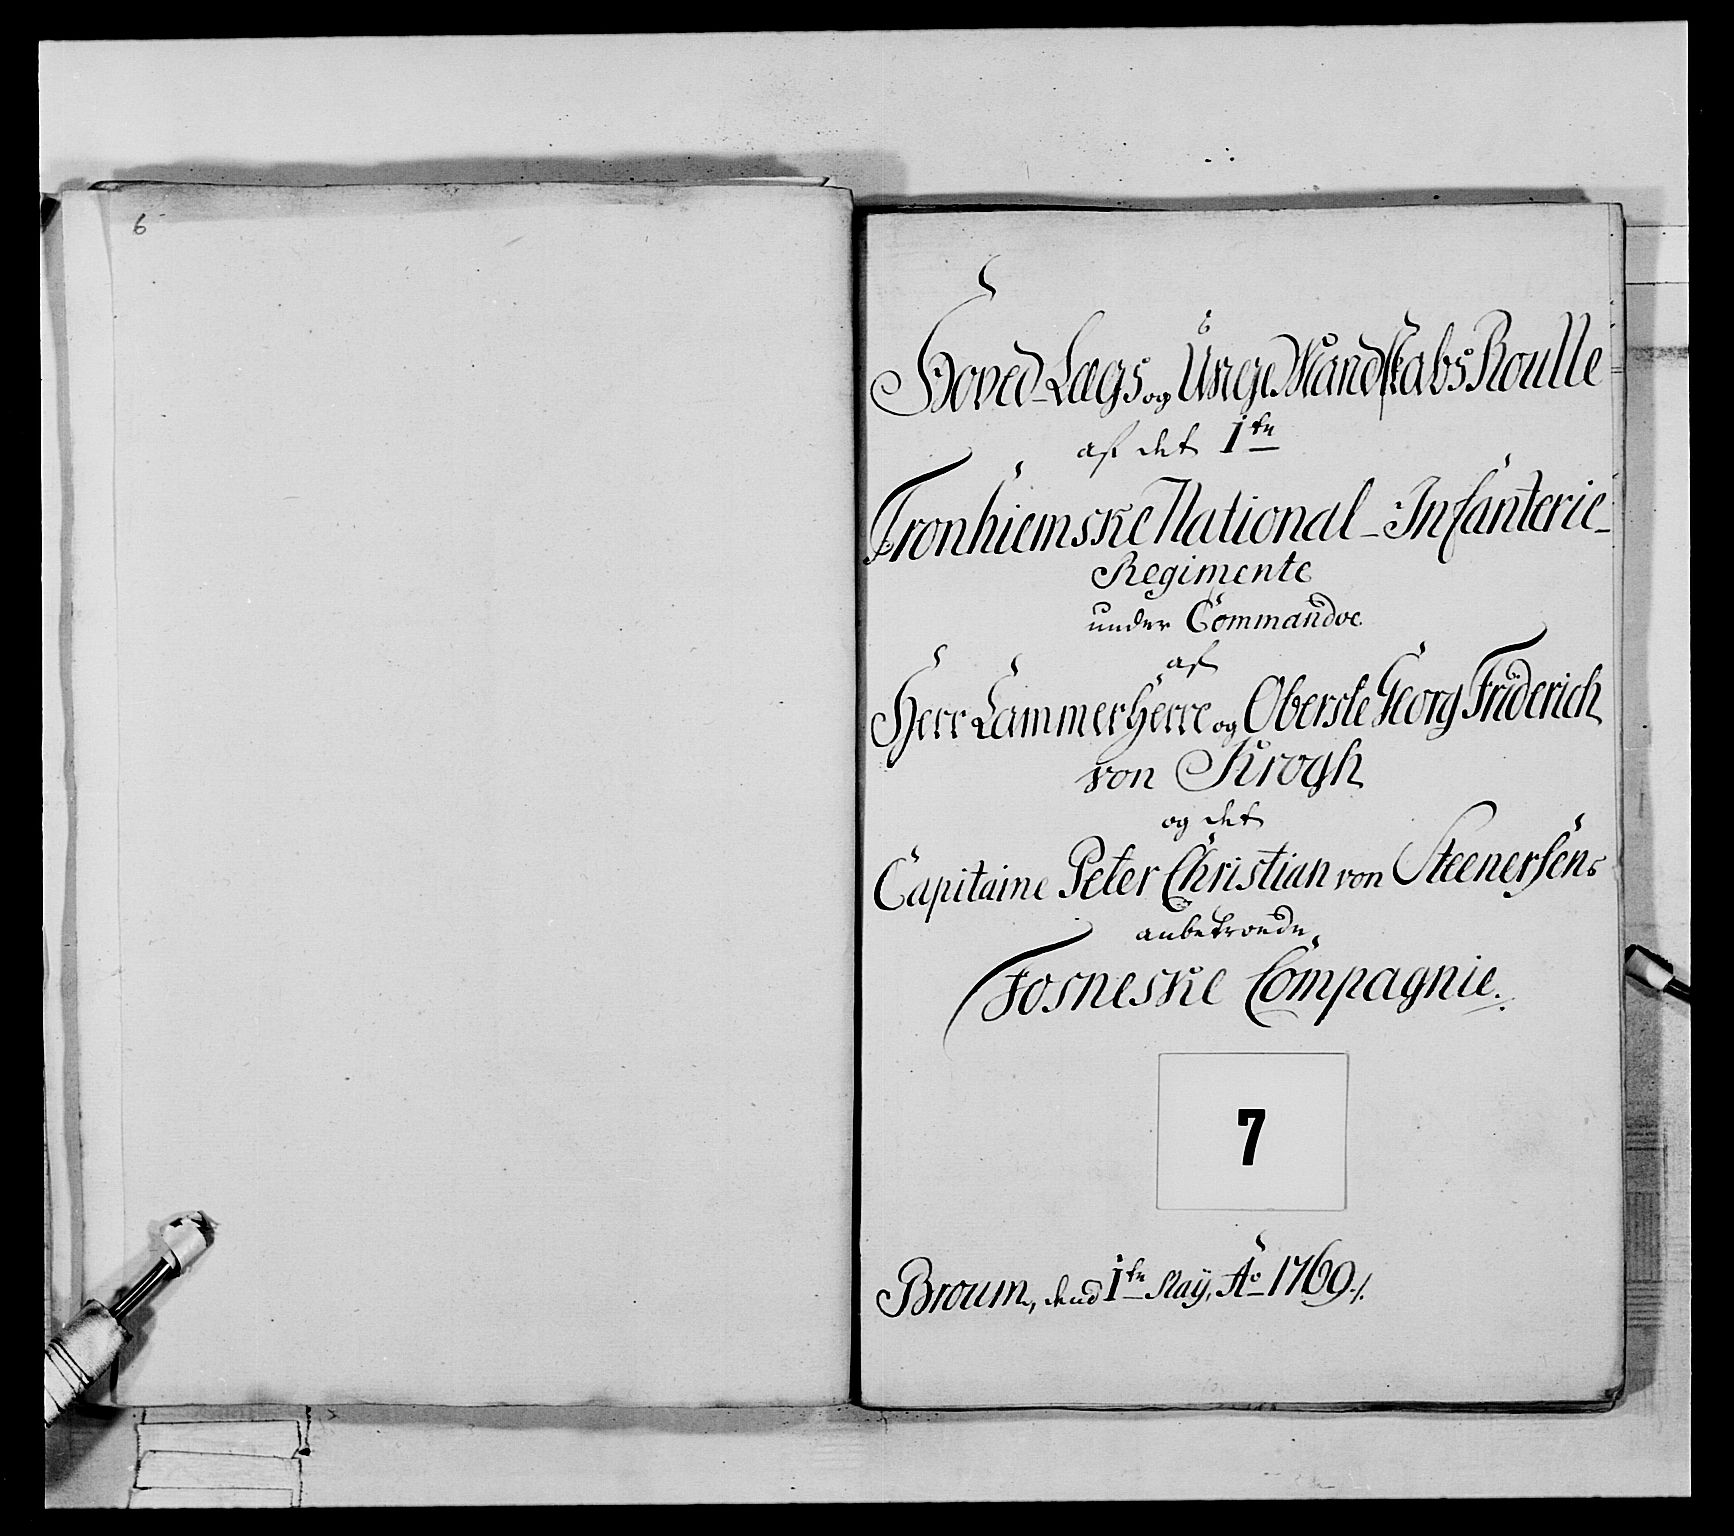 6
Hoved-Lægs og Unge Mandskabs Roulle
af det 1te
Tronhiemske National-Infanterie-
Regimente
under Commandoe
af
Herr Cammerherre og Oberste Georg Friderich
von Krogh
og det
Capitaine Peter Christian von Steenersens
anbetroede
Fosneske Compagnie.
7
Broum, dend 1te May, Ao 1769